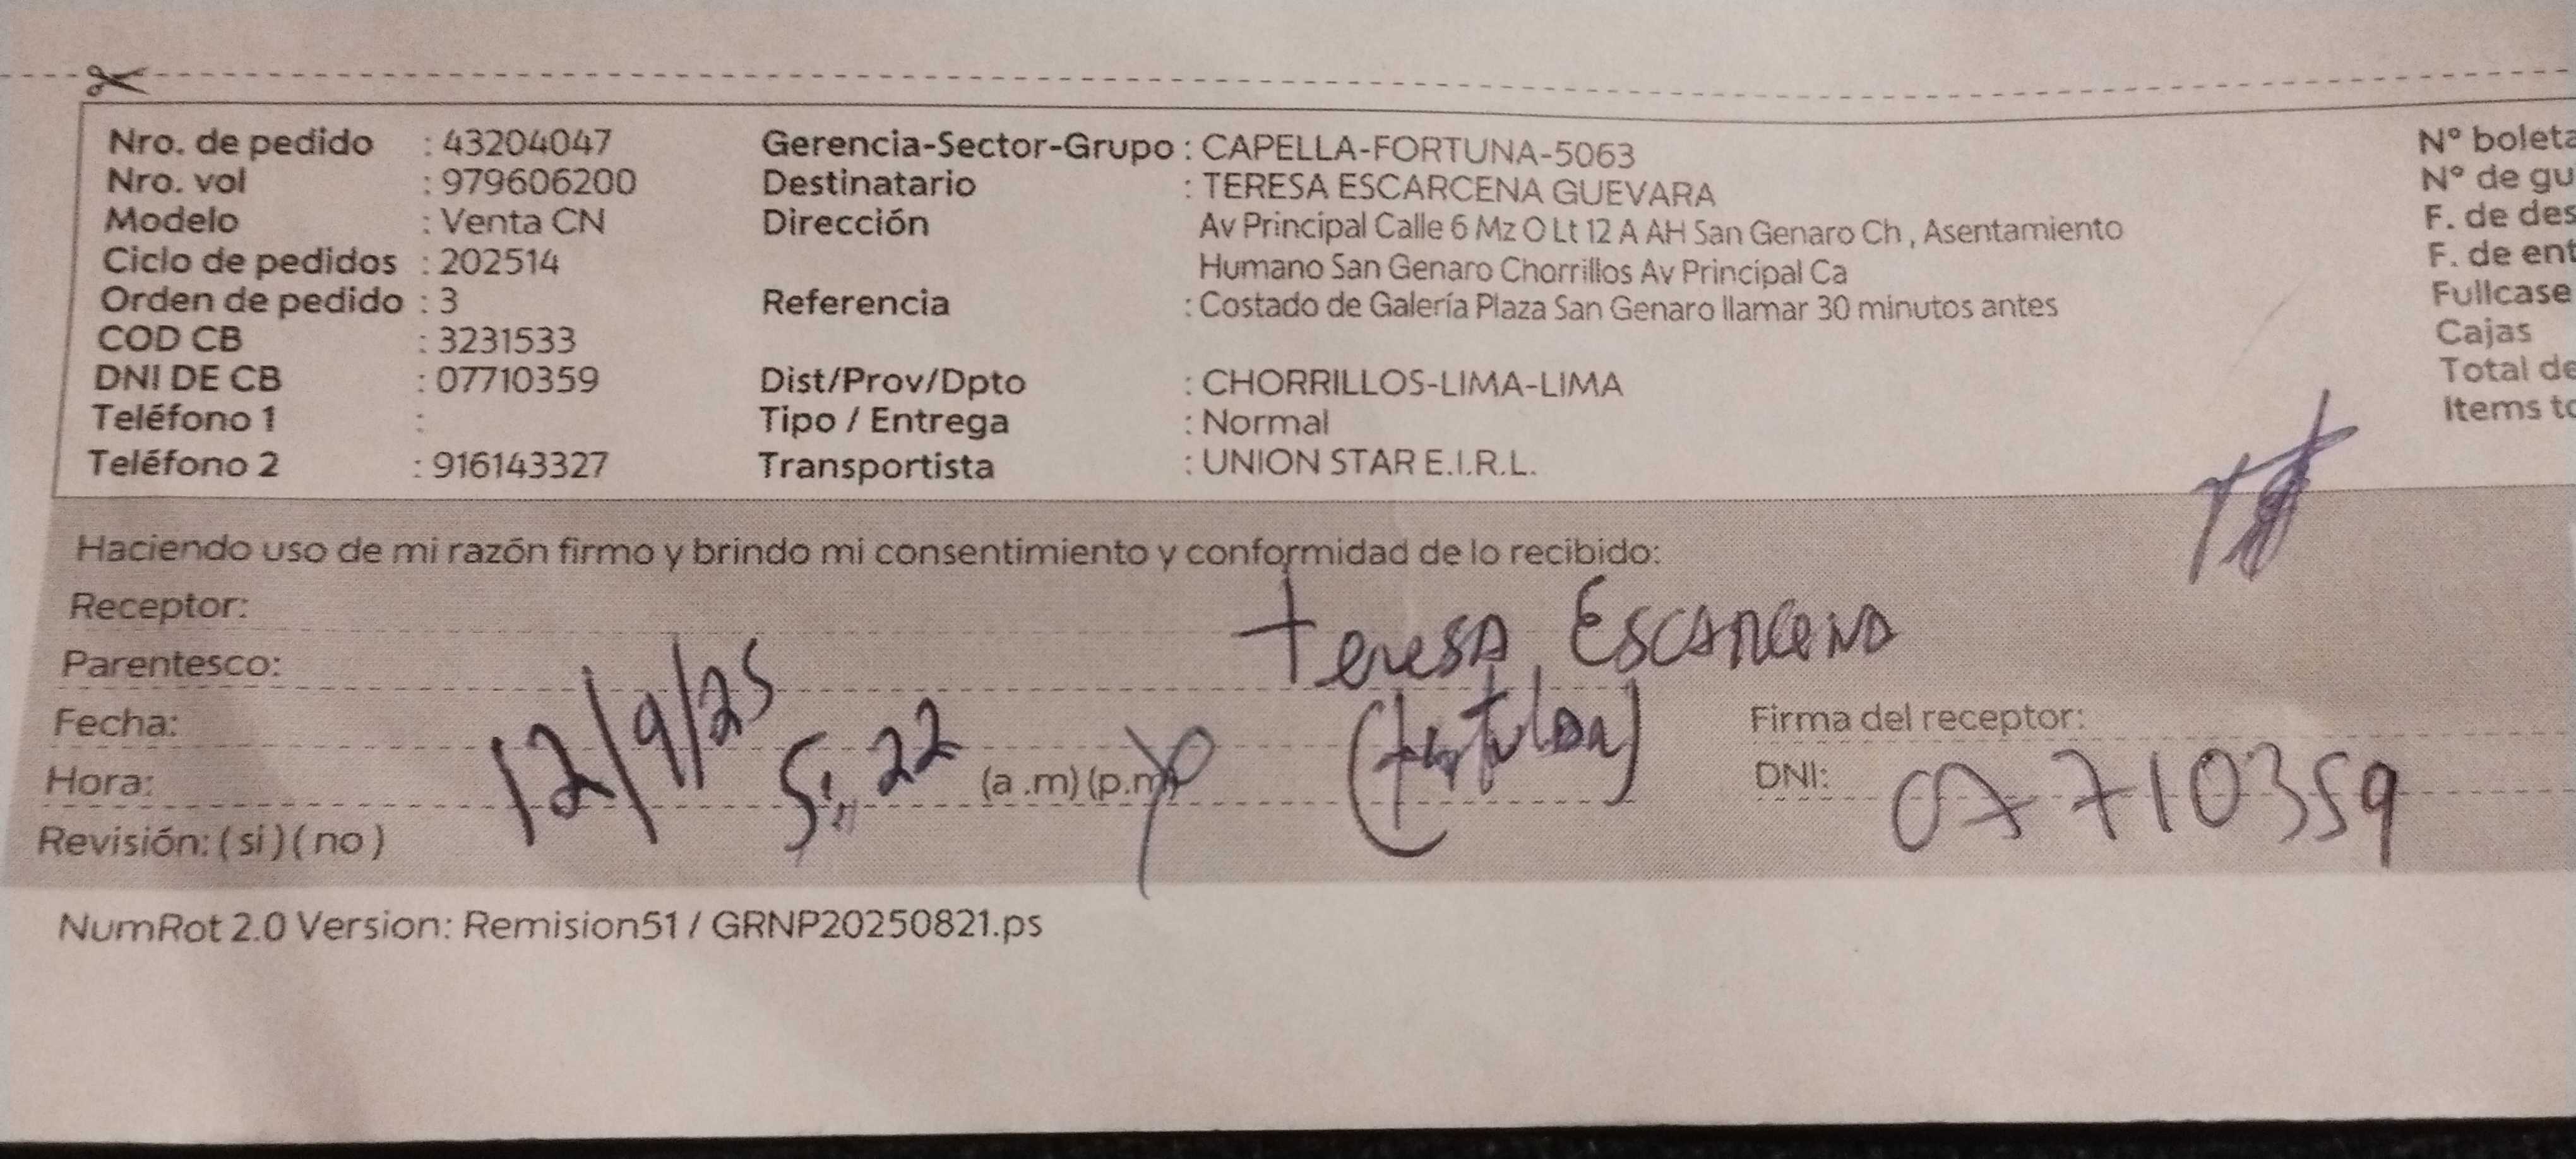 Nro. de pedido : 43204047
Nro. vol : 979606200
Modelo : Venta CN
Ciclo de pedidos : 202514
Orden de pedido : 3
COD CB : 3231533
DNI DE CB : 07710359
Teléfono 1 :
Teléfono 2 : 916143327
Gerencia-Sector-Grupo : CAPELLA-FORTUNA-5063
Destinatario : TERESA ESCARCENA GUEVARA
Dirección Av Principal Calle 6 Mz O Lt 12 A AH San Genaro Ch , Asentamiento
Humano San Genaro Chorrillos Av Principal Ca
Referencia : Costado de Galería Plaza San Genaro llamar 30 minutos antes
Dist/Prov/Dpto : CHORRILLOS-LIMA-LIMA
Tipo / Entrega : Normal
Transportista : UNION STAR E.I.R.L.
N° boleta
N° de gu
F. de des
F. de ent
Fullcase
Cajas
Total de
Items to
Haciendo uso de mi razón firmo y brindo mi consentimiento y conformidad de lo recibido:
Receptor: Teresa Escarcena
Parentesco: (titular)
Fecha: 12/9/25
Hora: 5:22 (a .m) (p.m)
Revisión: ( si ) ( no )
Firma del receptor:
DNI: 07710359
NumRot 2.0 Version: Remision51 / GRNP20250821.ps